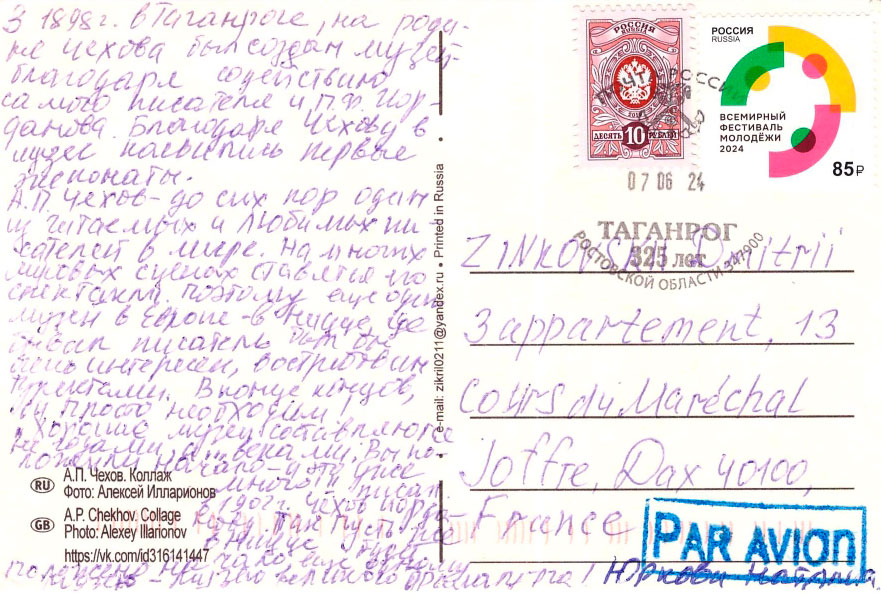 З 1898г. в Таганроге, на роди-
не Чехова был создан музей-
благодаря содействию
самого писателя и П.Ф. Иор-
данова. Благодаря Чехову в
музее появились первые
экспонаты.
А.П. Чехов - до сих пор один
из читаемых и любимых пи
сателей в мире. На многих
мировых сценах ставятся его
спектакли, поэтому еще один
музей в Европе - в Ницце, где
бывал писатель был бы
очень интересен, востребован
туристами. В конце концов,
он просто необходим!
Хорошие музеи составляются
не годами, а веками. Вы по-
ложили начало - и это уже
многого писал
в 1902г. Чехов Иорда-
так пусть
в Ницце будет
еще один
музей -
RU
А.П. Чехов. Коллаж
Фото: Алексей Илларионов
GB
A.P. Chekhov. Collage
Photo: Alexey Illarionov
https://vk.com/id316141447
e-mail: zikril0211@yandex.ru • Printed in Russia
РОССИЯ
RUSSIA
ДЕСЯТЬ 10 РУБЛЕЙ
РОССИЯ
RUSSIA
ВСЕМИРНЫЙ
ФЕСТИВАЛЬ
МОЛОДЁЖИ
2024
85₽
ПОЧТА РОССИИ
07 06 24
ТАГАНРОГ
325 лет
РОСТОВСКОЙ ОБЛАСТИ 347900
ZINKOVSKII Dmitrii
3 appartement, 13
Cours du Maréchal
Joffre, Dax 40100,
France
PAR AVION
Юркова Наталия